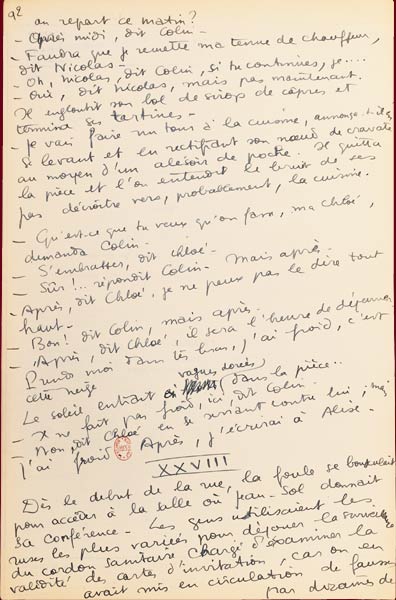 92
on repart ce matin?
- Après midi, dit Colin-
- Faudra que je remette ma tenue de chauffeur,
dit Nicolas-
- Oh, Nicolas, dit Colin, si tu continues, je....
- Oui, dit Nicolas, mais pas maintenant.
Il engloutit son bol de sirop de câpres et
termina ses tartines-
- Je vais faire un tour à la cuisine, annonça-t-il
se levant et en rectifiant son nœud de cravate
au moyen d'un alésoir de poche. Il quitta
la pièce et l'on entendit le bruit de ses
pas décroître vers, probablement, la cuisine.
- Qu'est-ce que tu veux qu'on fasse, ma Chloé,
demanda Colin-
- S'embrasser, dit Chloé-
- Sûr!.. répondit Colin- Mais après-
- Après, dit Chloé, je ne peux pas le dire tout
haut-
- Bon! dit Colin, mais après-
- Après, dit Chloé, il sera l'heure de déjeuner
Prends moi dans tes bras, j'ai froid, c'est
cette neige
vagues dorées
Le soleil entrait en dans la pièce..
- Il ne fait pas froid, ici, dit Colin.
- Non, dit Chloé en se serrant contre lui, mais
j'ai froid. Après, j'écrirai à Alise.
XXVIII
Dès le début de la rue, la foule se bousculait
pour accéder à la salle où Jean-Sol donnait
sa conférence- Les gens utilisaient les
ruses les plus variées pour déjouer la surveillance
du cordon sanitaire chargé d'examiner la
validité des cartes d'invitation, car on en
avait mis en circulation de fausses
par dizaines de